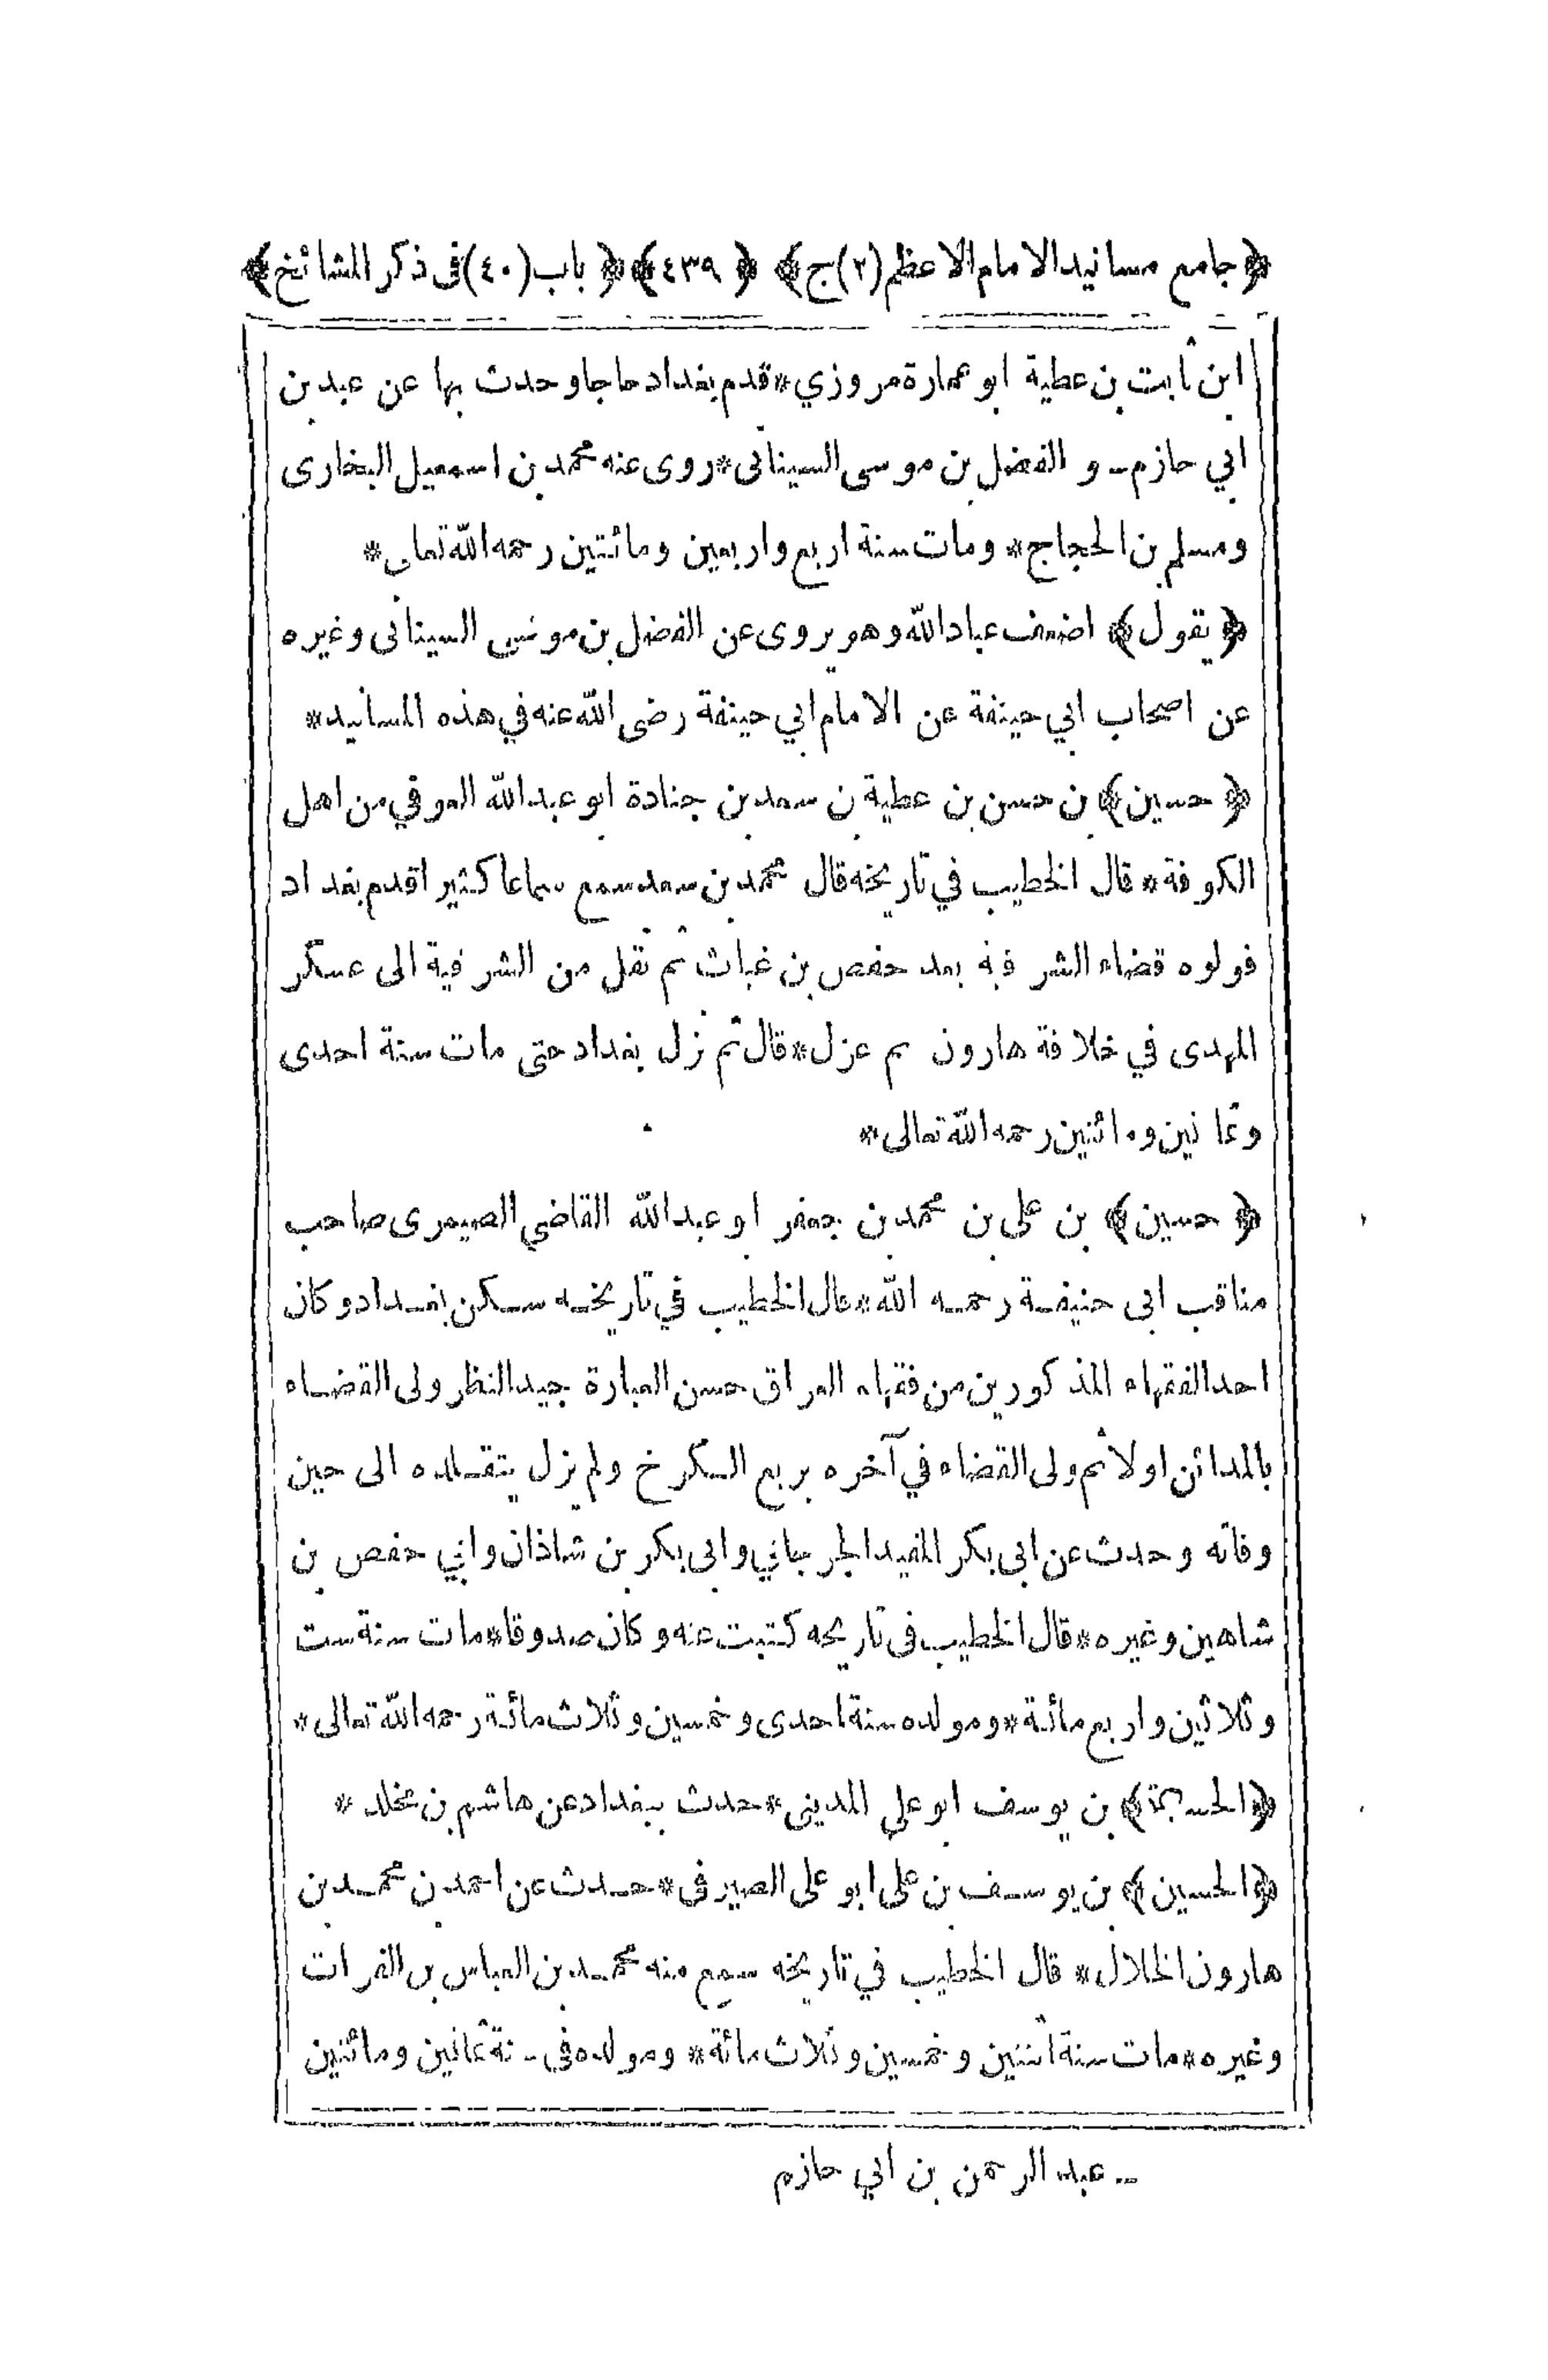 ﴿جامع مسانيد الامام الاعظم (٢) ج﴾ ﴿٤٣٩﴾ ﴿باب (٤٠) فى ذكر المشائخ﴾
ابن ثابت بن عطية ابو عمارة مروزي * قدم بغداد حاجا وحدث بها عن عبد بن
ابي حازم ــ و الفضل بن موسى السينانى * روى عنه محمد بن اسمعيل البخارى
ومسلم بن الحجاج * ومات سنة اربع واربعين ومائتين رحمه الله تعالى *
﴿يقول﴾ اضعف عباد الله وهو يروى عن الفضل بن موسى السينانى وغيره
عن اصحاب ابي حنيفة عن الامام ابي حنيفة رضى الله عنه في هذه المسانيد *
﴿حسين﴾ بن حسن بن عطية بن سعد بن جنادة ابو عبد الله العوفي من اهل
الكوفة * قال الخطيب في تاريخه قال محمد بن سعد سمع سماعا كثيرا قدم بغداد
فولوه قضاء الشرقية بعد حفص بن غياث ثم نقل من الشرقية الى عسكر
المهدى في خلافة هارون ثم عزل * قال ثم نزل بغداد حتى مات سنة احدى
وثمانين ومائتين رحمه الله تعالى *
﴿حسين﴾ بن على بن محمد بن جعفر ابو عبد الله القاضي الصيمرى صاحب
مناقب ابى حنيفة رحمه الله * قال الخطيب في تاريخه سكن بغداد وكان
احد الفقهاء المذكورين من فقهاء العراق حسن العبارة جيد النظر ولى القضاء
بالمدائن اولا ثم ولى القضاء في آخره بربع الكرخ ولم يزل يتقلده الى حين
وفاته وحدث عن ابى بكر المفيد الجرجاني وابى بكر بن شاذان وابي حفص بن
شاهين وغيره * قال الخطيب فى تاريخه كتبت عنه وكان صدوقا * مات سنة ست
وثلاثين واربع مائة * ومولده سنة احدى وخمسين وثلاث مائة رحمه الله تعالى *
بن يوسف ابو علي المدينى * حدث ببغداد عن هاشم بن مخلد *
﴿الحسين﴾ بن يوسف بن على ابو على الصيرفى * حدث عن احمد بن محمد بن
هارون الخلال * قال الخطيب في تاريخه سمع منه محمد بن العباس بن الفرات
وغيره * مات سنة اثنتين وخمسين وثلاث مائة * ومولده فى سنة ثمانين ومائتين
ــ عبد الرحمن بن ابي حازم